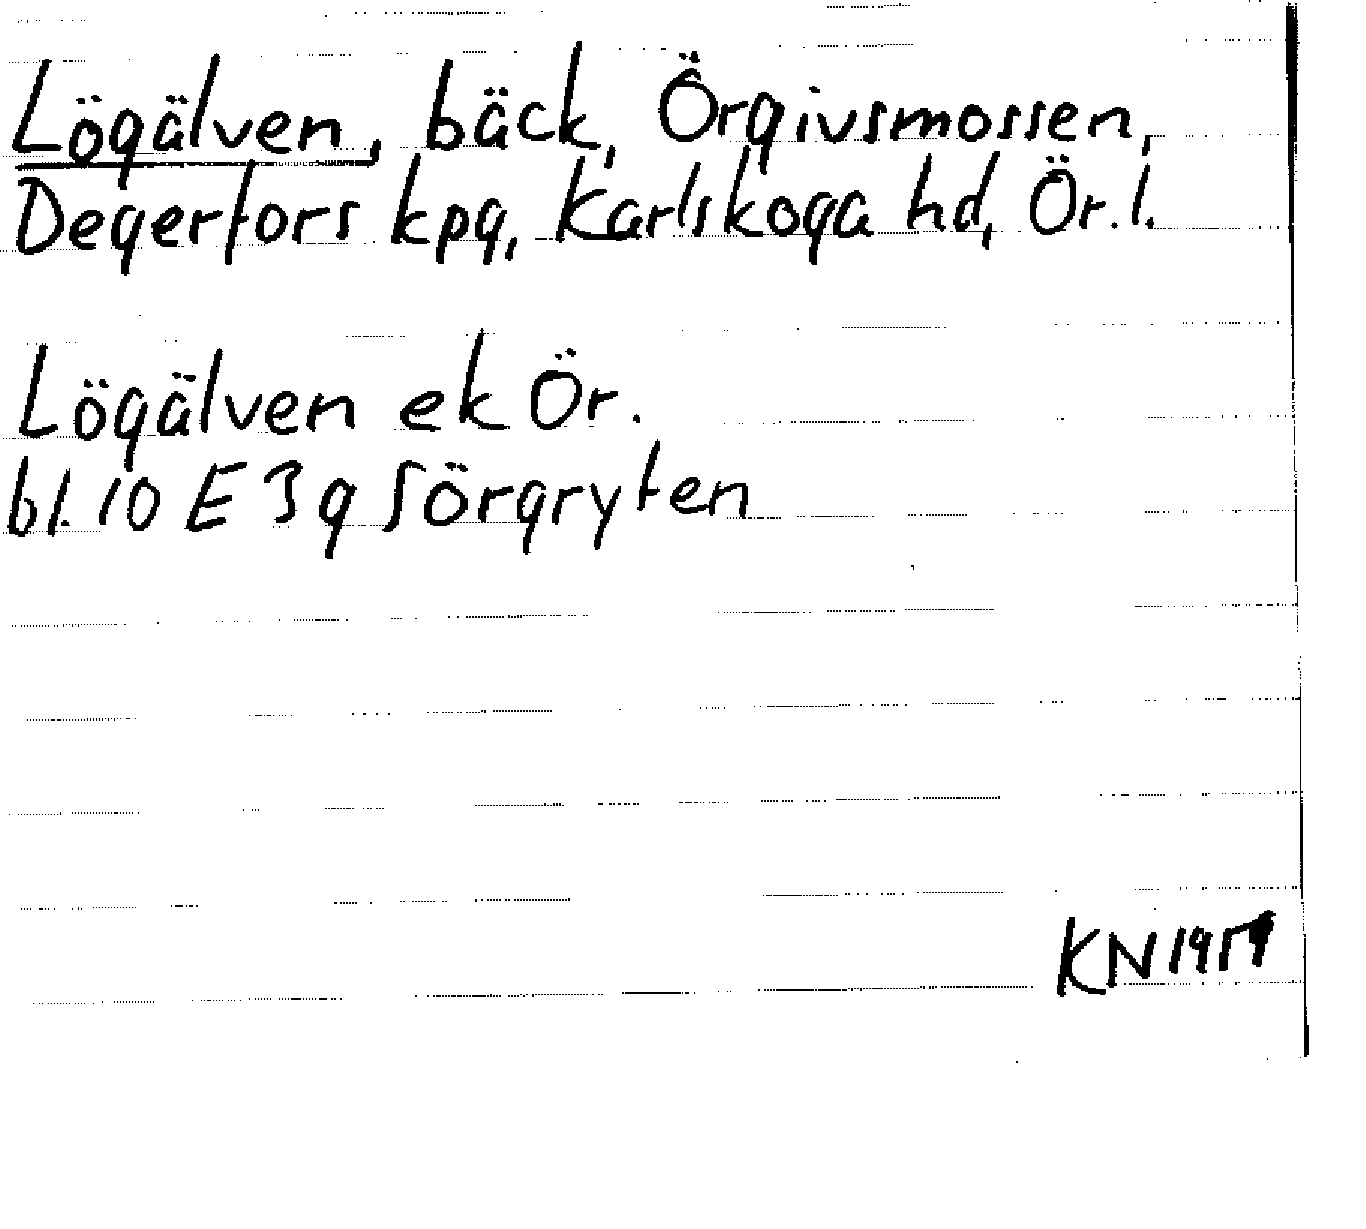 Lögälven, bäck, Örgivsmossen,
Degerfors kpg, Karlskoga hd, Ör. l.
Lögälven ek Ör.
bl. 10 E 3 g Sörgryten
KN